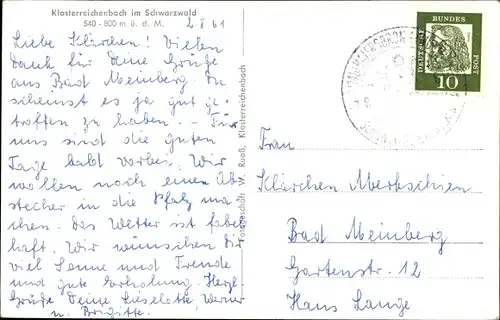 Klosterreichenbach im Schwarzwald
540 - 800 m ü. d. M.
2 8 61
Liebe Klärchen! Vielen
Dank für Deine Grüße
aus Bad Meinberg. Du
scheinst es ja gut ge-
troffen zu haben. - Für
uns sind die guten
Tage bald vorbei. Wir
wollen noch einen Ab-
stecher in die Pfalz ma-
chen. Das Wetter ist fabel-
haft. Wir wünschen Dir
viel Sonne und Freude
und gute Erholung. Herzl.
Grüße Deine Lieselotte, Werner
u. Brigitte.
Fotogeschäft W. Raaß, Klosterreichenbach
DEUTSCHE BUNDES POST
10
Frau
Klärchen
Bad Meinberg
Gartenstr. 12
Haus Lange